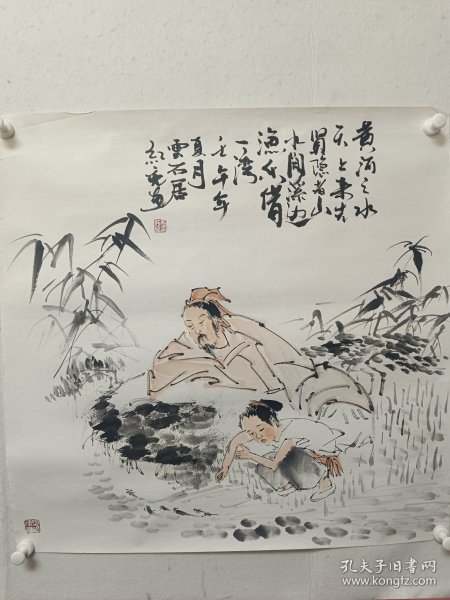 黄河之水
天上来失
胃隐者山
水间溪边
渔人背
一湾
壬午年
夏月
雲石居
画
孔夫子旧书网
www.kongfz.com